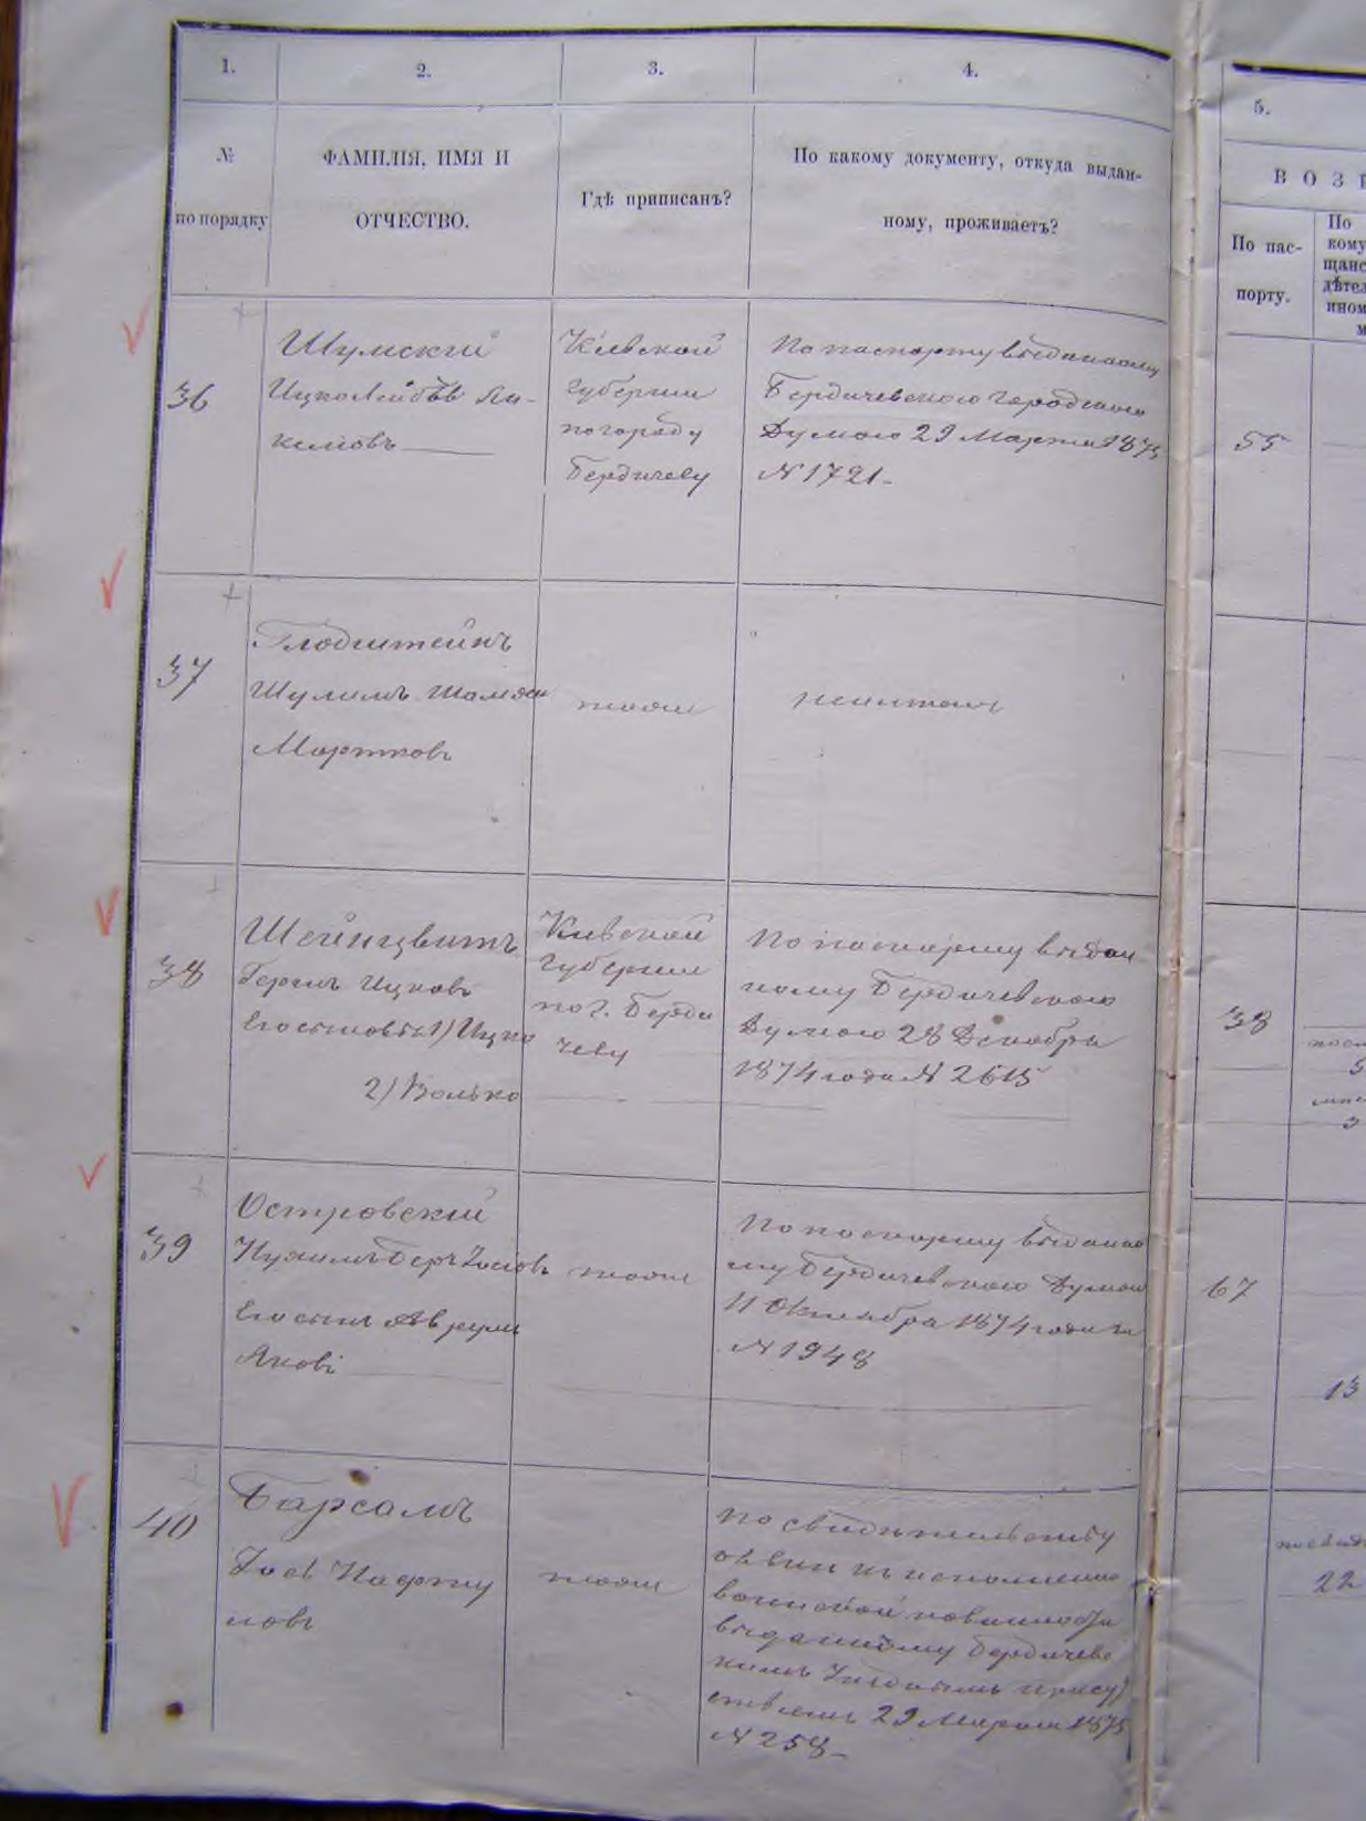 1.
2.
3.
4.
5.
№
по порядку
ФАМИЛІЯ, ИМЯ И
ОТЧЕСТВО.
Гдѣ приписанъ?
По какому документу, откуда выдан-
ному, проживаетъ?
ВОЗР
По пас-
порту.
По
кому
щанс
дѣтел
ином
м
36
Шумскій
Ицко Лейбовъ Ян-
келіовъ
Кіевской
губерніи
по городу
Бердичеву
По паспорту выданному
Бердичевскою городскою
Думою 29 Марта 1875
N 1721
55
37
Глодштейнъ
Шулимъ
Мортковъ
тоже
неимѣетъ
38
Шейнцвитъ
Гершъ Ицковъ
Его сыновья 1) Ицко
2) Волько
Кіевской
губерніи
по г. Берди
чеву
По паспорту выдан
ному Бердичевскою
Думою 28 Декабря
1874 года N 2615
38
5
3
39
Островскій
Нухимъ Беръ Іосіовъ
Его сынъ Аврумъ
Янковъ
тоже
По паспорту выданно
му Бердичевскою Думою
11 Октября 1874 года за
N 1948
67
13
40
Барсамъ
Іось Нафту
ловъ
тоже
По свидѣтельству
о явкѣ къ исполненію
воинской повинности
выданному Бердичевс
кимъ Уѣзднымъ присут
ствіемъ 29 Марта 1875
N 258
22